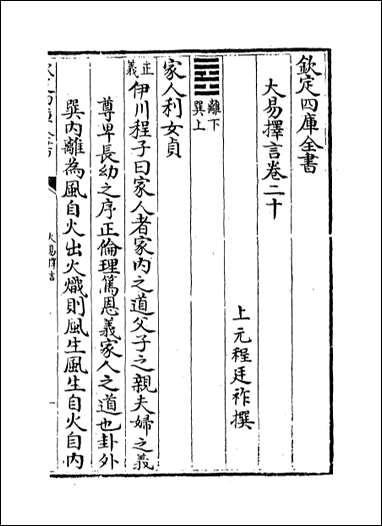 欽定四庫全書
大易擇言卷二十
上元程廷祚撰
離下
巽上
家人利女貞
正義
伊川程子曰家人者家內之道父子之親夫婦之義
尊卑長幼之序正倫理篤恩義家人之道也卦外
巽內離為風自火出火熾則風生風生自火自內
大易擇言
一